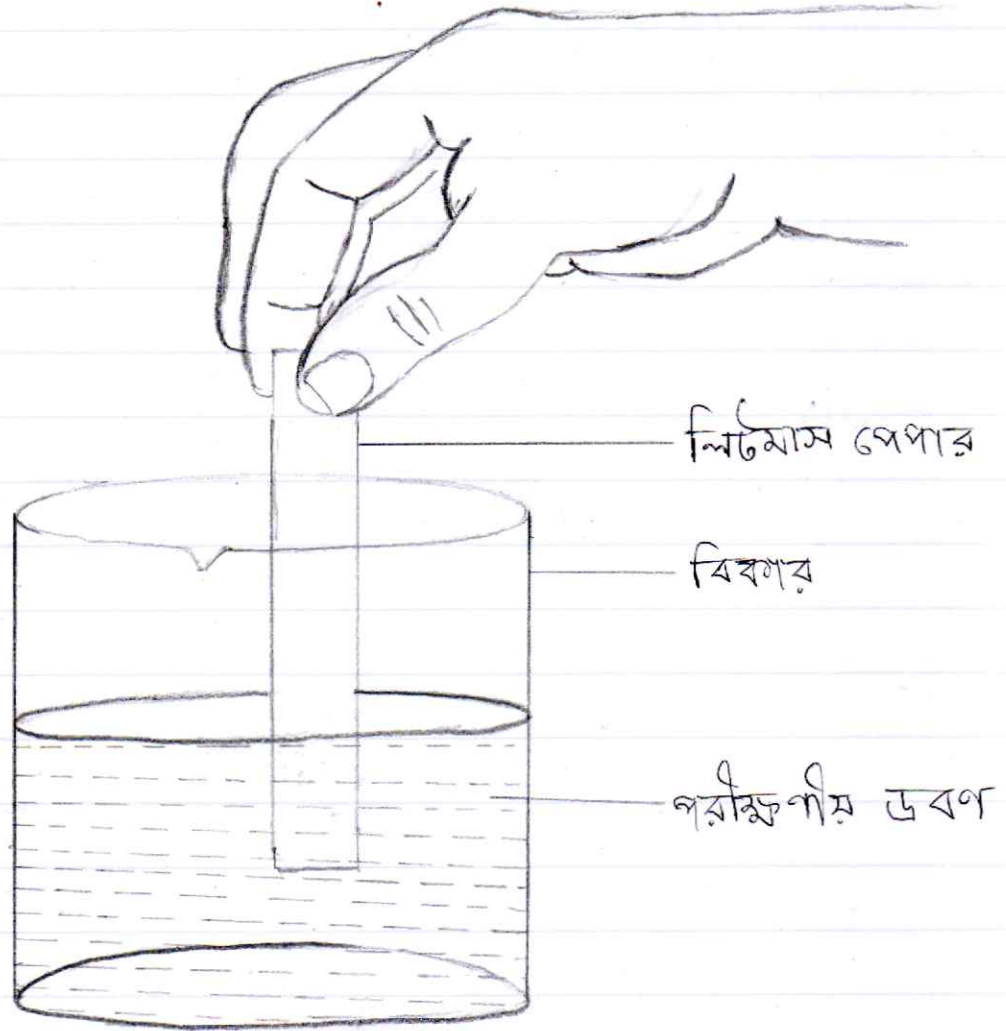 লিটমাস পেপার
বিকার
পরীক্ষণীয় দ্রবণ